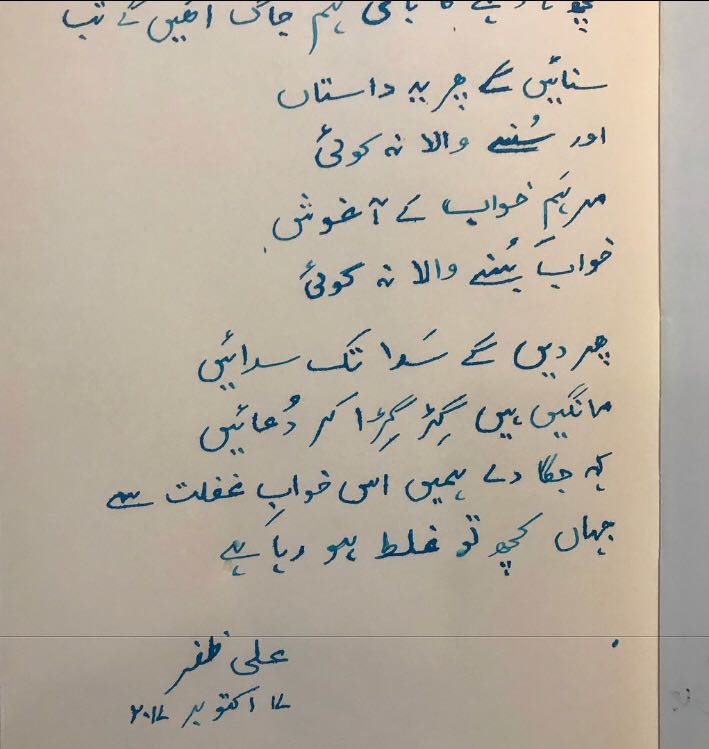 ہم جاگ اٹھیں گے تب
سنائیں گے پھر یہ داستاں
اور سُننے والا نہ کوئی
مرہم خواب کے آغوش
خواب بُننے والا نہ کوئی
پھر دیں گے سَدا تک سدائیں
مانگیں ہیں گِڑگِڑا کر دُعائیں
کہ جگا دے ہمیں اس خوابِ غفلت سے
جہاں کچھ تو غلط ہو رہا ہے
علی ظفر
۱۷ اکتوبر ۲۰۱۷